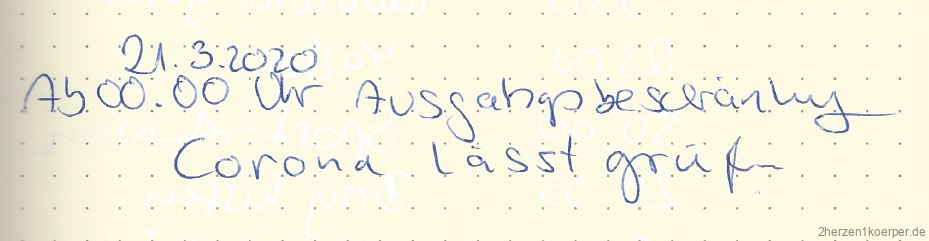 21.3.2020
Ab 00.00 Uhr Ausgangsbeschränkung
Corona lässt grüßen
2herzen1koerper.de